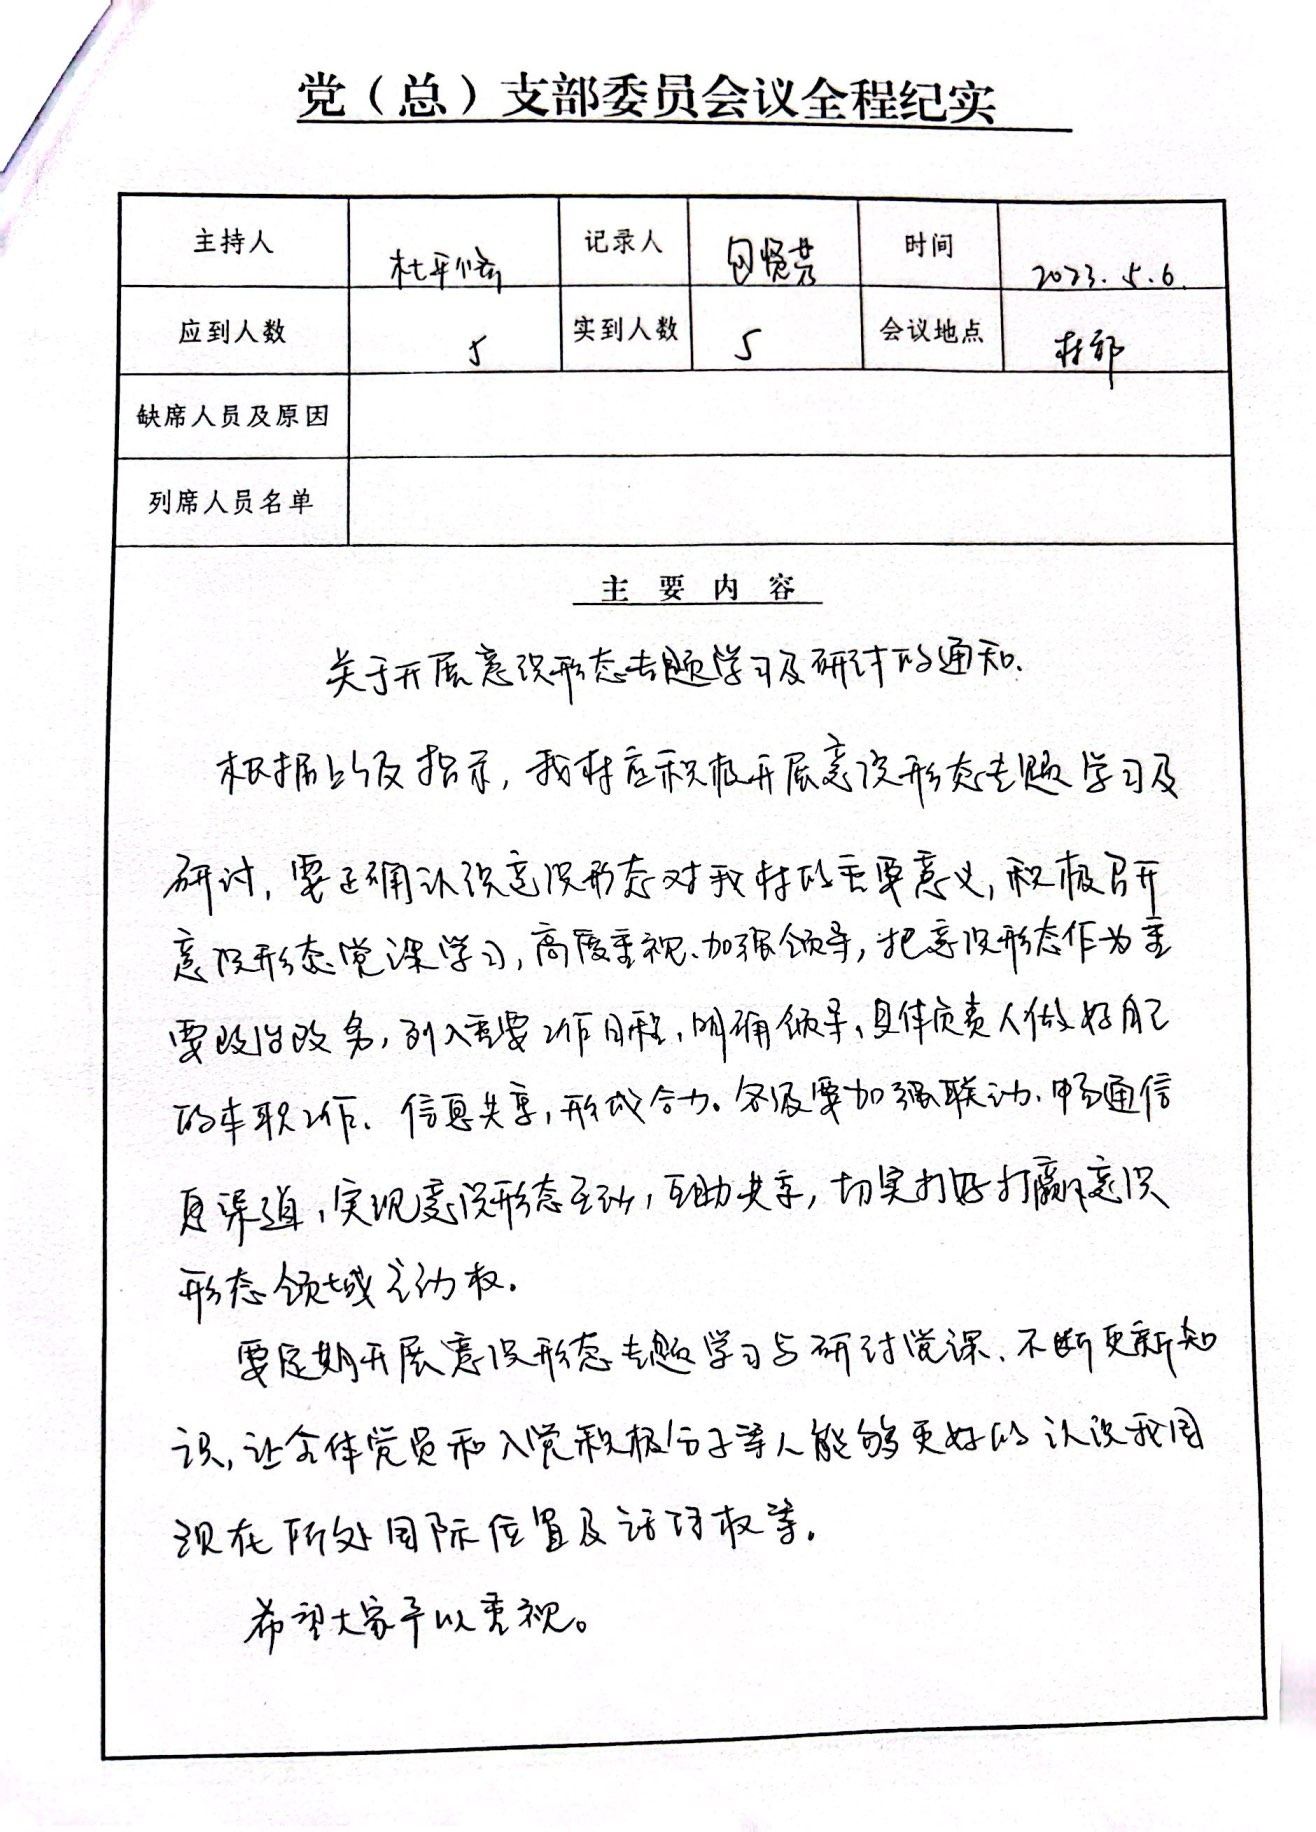 党（总）支部委员会议全程纪实
主持人 杜平 记录人 包贤芳 时间 2023.5.6.
应到人数 5 实到人数 5 会议地点 村部
缺席人员及原因
列席人员名单
主要内容
关于开展意识形态专题学习及研讨的通知.
根据上级指示，我村应积极开展意识形态专题学习及
研访，要正确认识意识形态对我村的重要意义，积极召开
意识形态党课学习，高度重视、加强领导，把意识形态作为重
要政治政务，列入重要工作日程，明确领导、具体负责人做好自己
的本职工作、信息共享，形成合力。各级要加强联动、畅通信
息渠道，实现意识形态互动，互助共享，切实打好打赢意识
形态领域主动权.
要定期开展意识形态专题学习与研讨党课、不断更新知
识，让全体党员和入党积极分子等人能够更好的认识我国
现在所处国际位置及话语权等.
希望大家予以重视。